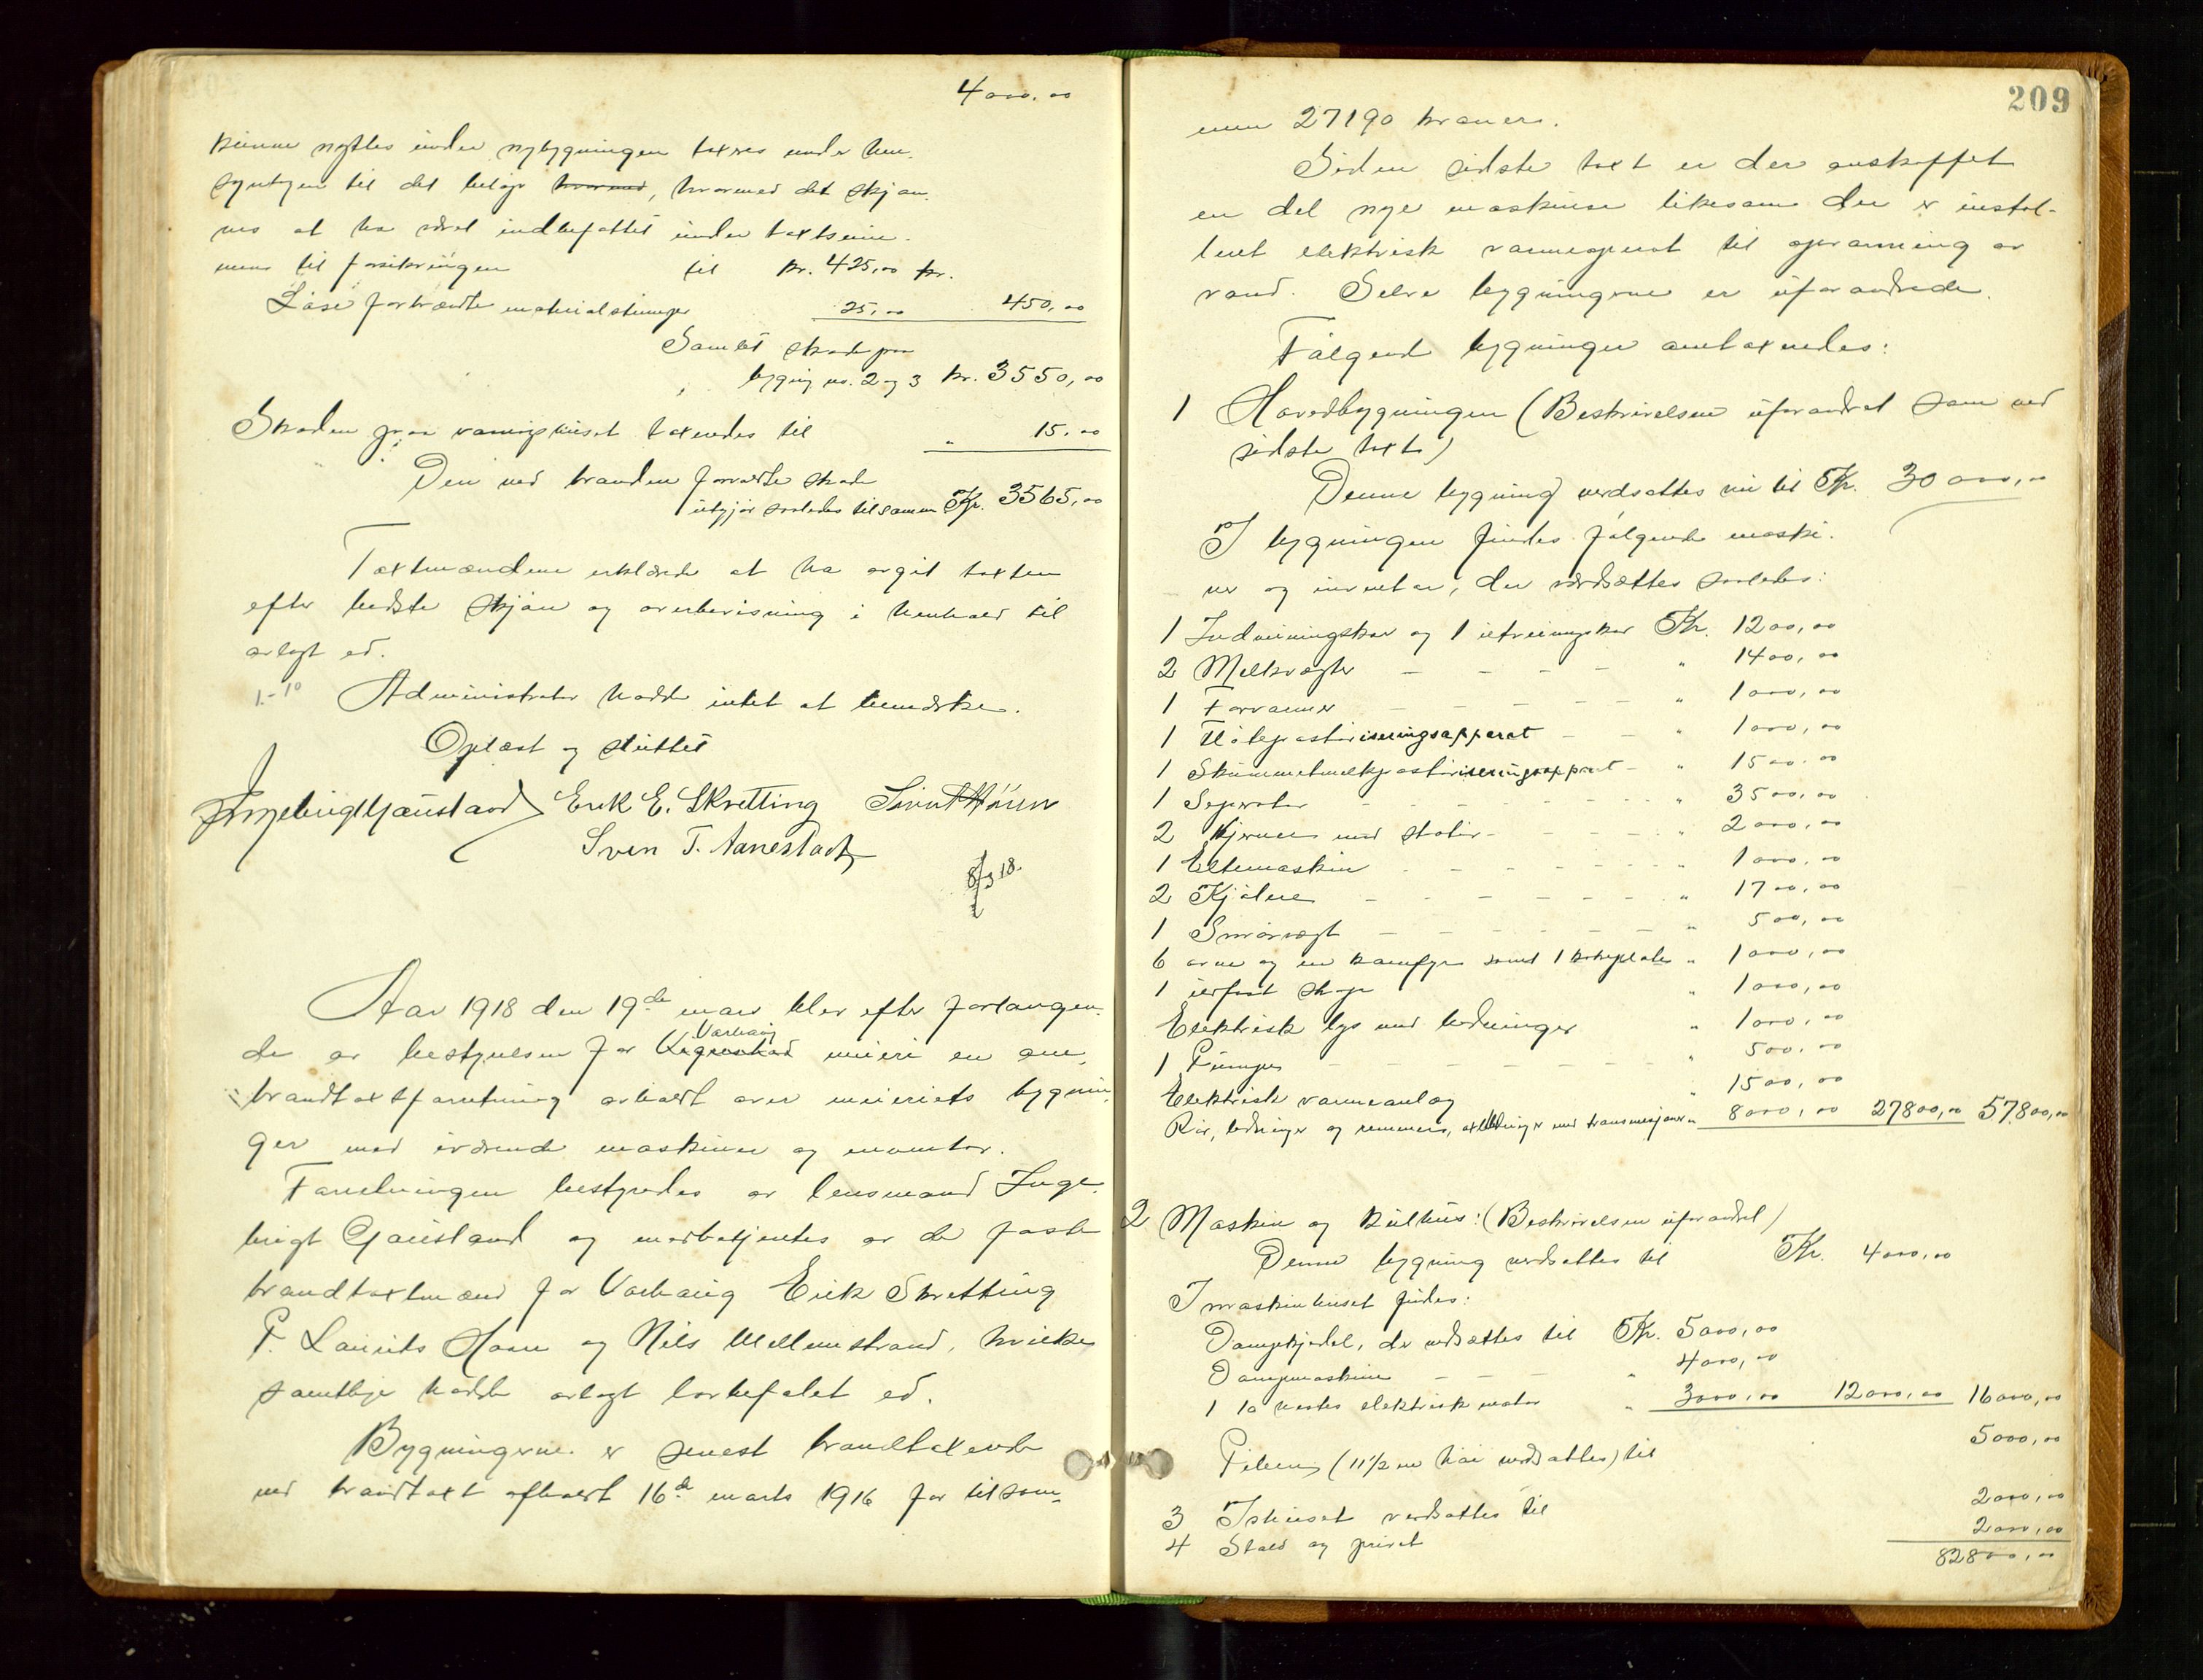 4000,00
kunne nyttes under nybygningen taxeres under hen-
syntagen til det beløp hvormed, hvormed det skjøn-
nes at ha været indbefattet under taxtsum-
men til forsikringen til kr. 425,00 kr.
Løse forbrændte materialstumper 25,00 450,00
Samlet skade paa
bygning no. 2 og 3 kr. 3550,00
Skaden paa vaaningshuset taxeredes til " 15,00
Den ved branden forvoldte skade
utgjør saaledes tilsammen Kr. 3565,00
Taxtmændene erklærede at ha avgit taxten
efter bedste skjøn og overbevisning i henhold til
avlagt ed.
1.-10 Administrator hadde intet at bemerke.
Oplæst og sluttet
Ingebrigt Gausland Erik E. Skretting
Sven T. Aanestad
8/3 18.
Aar 1918 den 19de mars blev efter forlangen-
de av bestyrelsen for Varhaug meieri en om-
brandtaxtforretning avholdt over meieriets bygnin-
ger med iværende maskiner og inventar.
Forretningen bestyredes av lensmand Inge-
brigt Gausland og medbetjentes av de faste
brandtaxtmænd for Varhaug Erik Skretting
P. Laurits Haan og Nils Mellemstrand, hvilke
samtlige hadde avlagt lovbefalet ed.
Bygningerne er senest brandtaxerede
ved brandtaxt avholdt 16de marts 1916 for tilsam-
209
men 27190 kroner.
Siden sidste taxt er der anskaffet
en del nye maskiner likesom der er instal-
leret elektrisk varmeapparat til opvarming av
vand. Selve bygningerne er uforandrede.
Følgende bygninger omtaxeredes:
1 Hovedbygningen (Beskrivelsen uforandret som ved
sidste taxt)
Denne bygning verdsættes nu til Kr. 30000,00
I bygningen findes følgende maski-
ner og inventar, der værdsættes saaledes:
1 Indveiningskar og 1 utveiningskar Kr. 1200,00
2 Melkevægter - - - - " 1400,00
1 Forvarmer - - - - - " 1000,00
1 Fløtepastøriseringsapparat - - " 1000,00
1 Skummetmelkpastøriseringsapparat - " 1500,00
1 Seperator - - - - - - " 3500,00
2 Kjerner med stativ - - - - " 2000,00
1 Eltemaskin - - - - - " 1000,00
2 Kjølere - - - - - - " 1700,00
1 Smørvægt - - - - - - " 500,00
6 ovne og en komfyr samt 1 kokeplate " 1000,00
1 ildfast skap " 1000,00
Elektrisk lys med ledninger " 1000,00
1 Pumpe - - - - - - " 500,00
Elektrisk varmeanlæg " 1500,00
Rør, ledninger og remmer, axelledninger med transmisjoner " 8000,00 27800,00 57800,00
2 Maskin og kulhus: (Beskrivelsen uforandret)
Denne bygning verdsættes til Kr. 4000,00
I maskinhuset findes:
Dampkjedel, der verdsættes til Kr. 5000,00
Dampmaskine - - - " 4000,00
1 10 hestes elektrisk motor " 3000,00 12000,00 16000,00
Pipen (11½ m høi verdsættes) til 5000,00
3 Ishuset verdsættes til 2000,00
4 Stald og privet 2000,00
82800,00